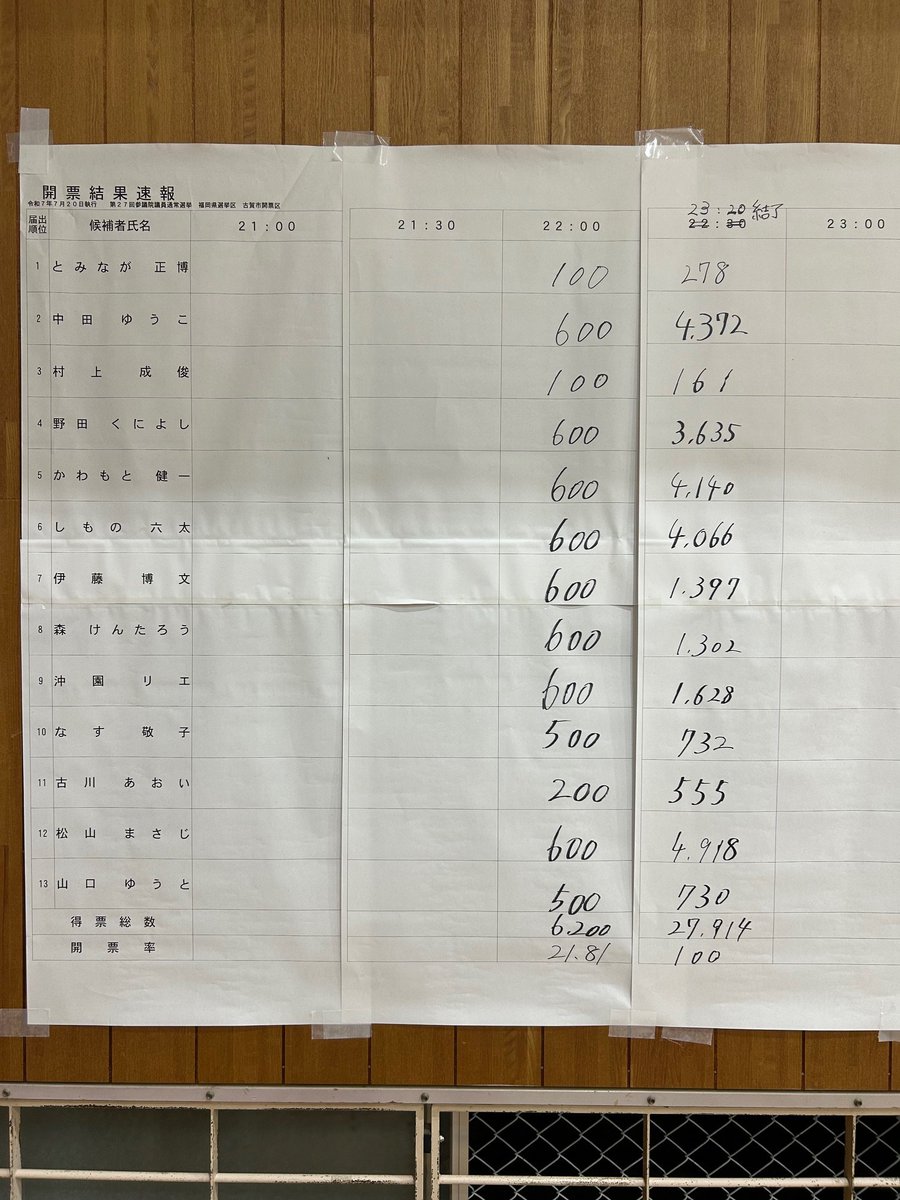 開票結果速報
令和7年7月20日執行 第27回参議院議員通常選挙 福岡県選挙区 古賀市開票区
届出順位 候補者氏名 21:00 21:30 22:00 23:20 結了 22:30 23:00
1 とみなが 正博 100 278
2 中田 ゆうこ 600 4.372
3 村上 成俊 100 161
4 野田 くによし 600 3,635
5 かわもと 健一 600 4,140
6 しもの 六太 600 4.066
7 伊藤 博文 600 1.397
8 森 けんたろう 600 1.302
9 沖園 リエ 600 1,628
10 なす 敬子 500 732
11 古川 あおい 200 555
12 松山 まさじ 600 4.918
13 山口 ゆうと 500 730
得票総数 6.200 27.914
開票率 21.81 100